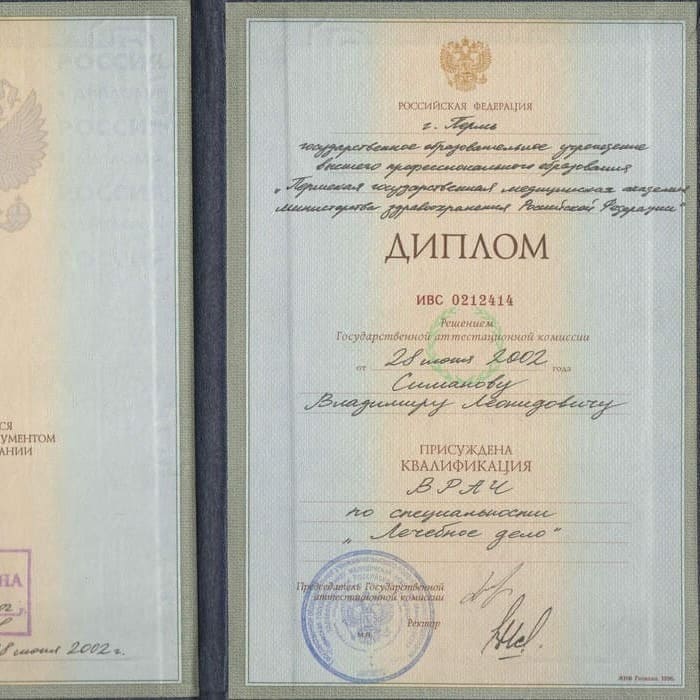 РОССИЯ
РОССИЯ
СЯ
УМЕНТОМ
АНИИ
НА
28 июня 2002 г.
РОССИЙСКАЯ ФЕДЕРАЦИЯ
г. Пермь
государственное образовательное учреждение
высшего профессионального образования
„Пермская государственная медицинская академия
Министерства здравоохранения Российской Федерации"
ДИПЛОМ
ИВС 0212414
Решением
Государственной аттестационной комиссии
от 28 июня 2002 года
Симанову
Владимиру Леонидовичу
ПРИСУЖДЕНА
КВАЛИФИКАЦИЯ
ВРАЧ
по специальности
„Лечебное дело"
Председатель Государственной
аттестационной комиссии
Ректор
М.П.